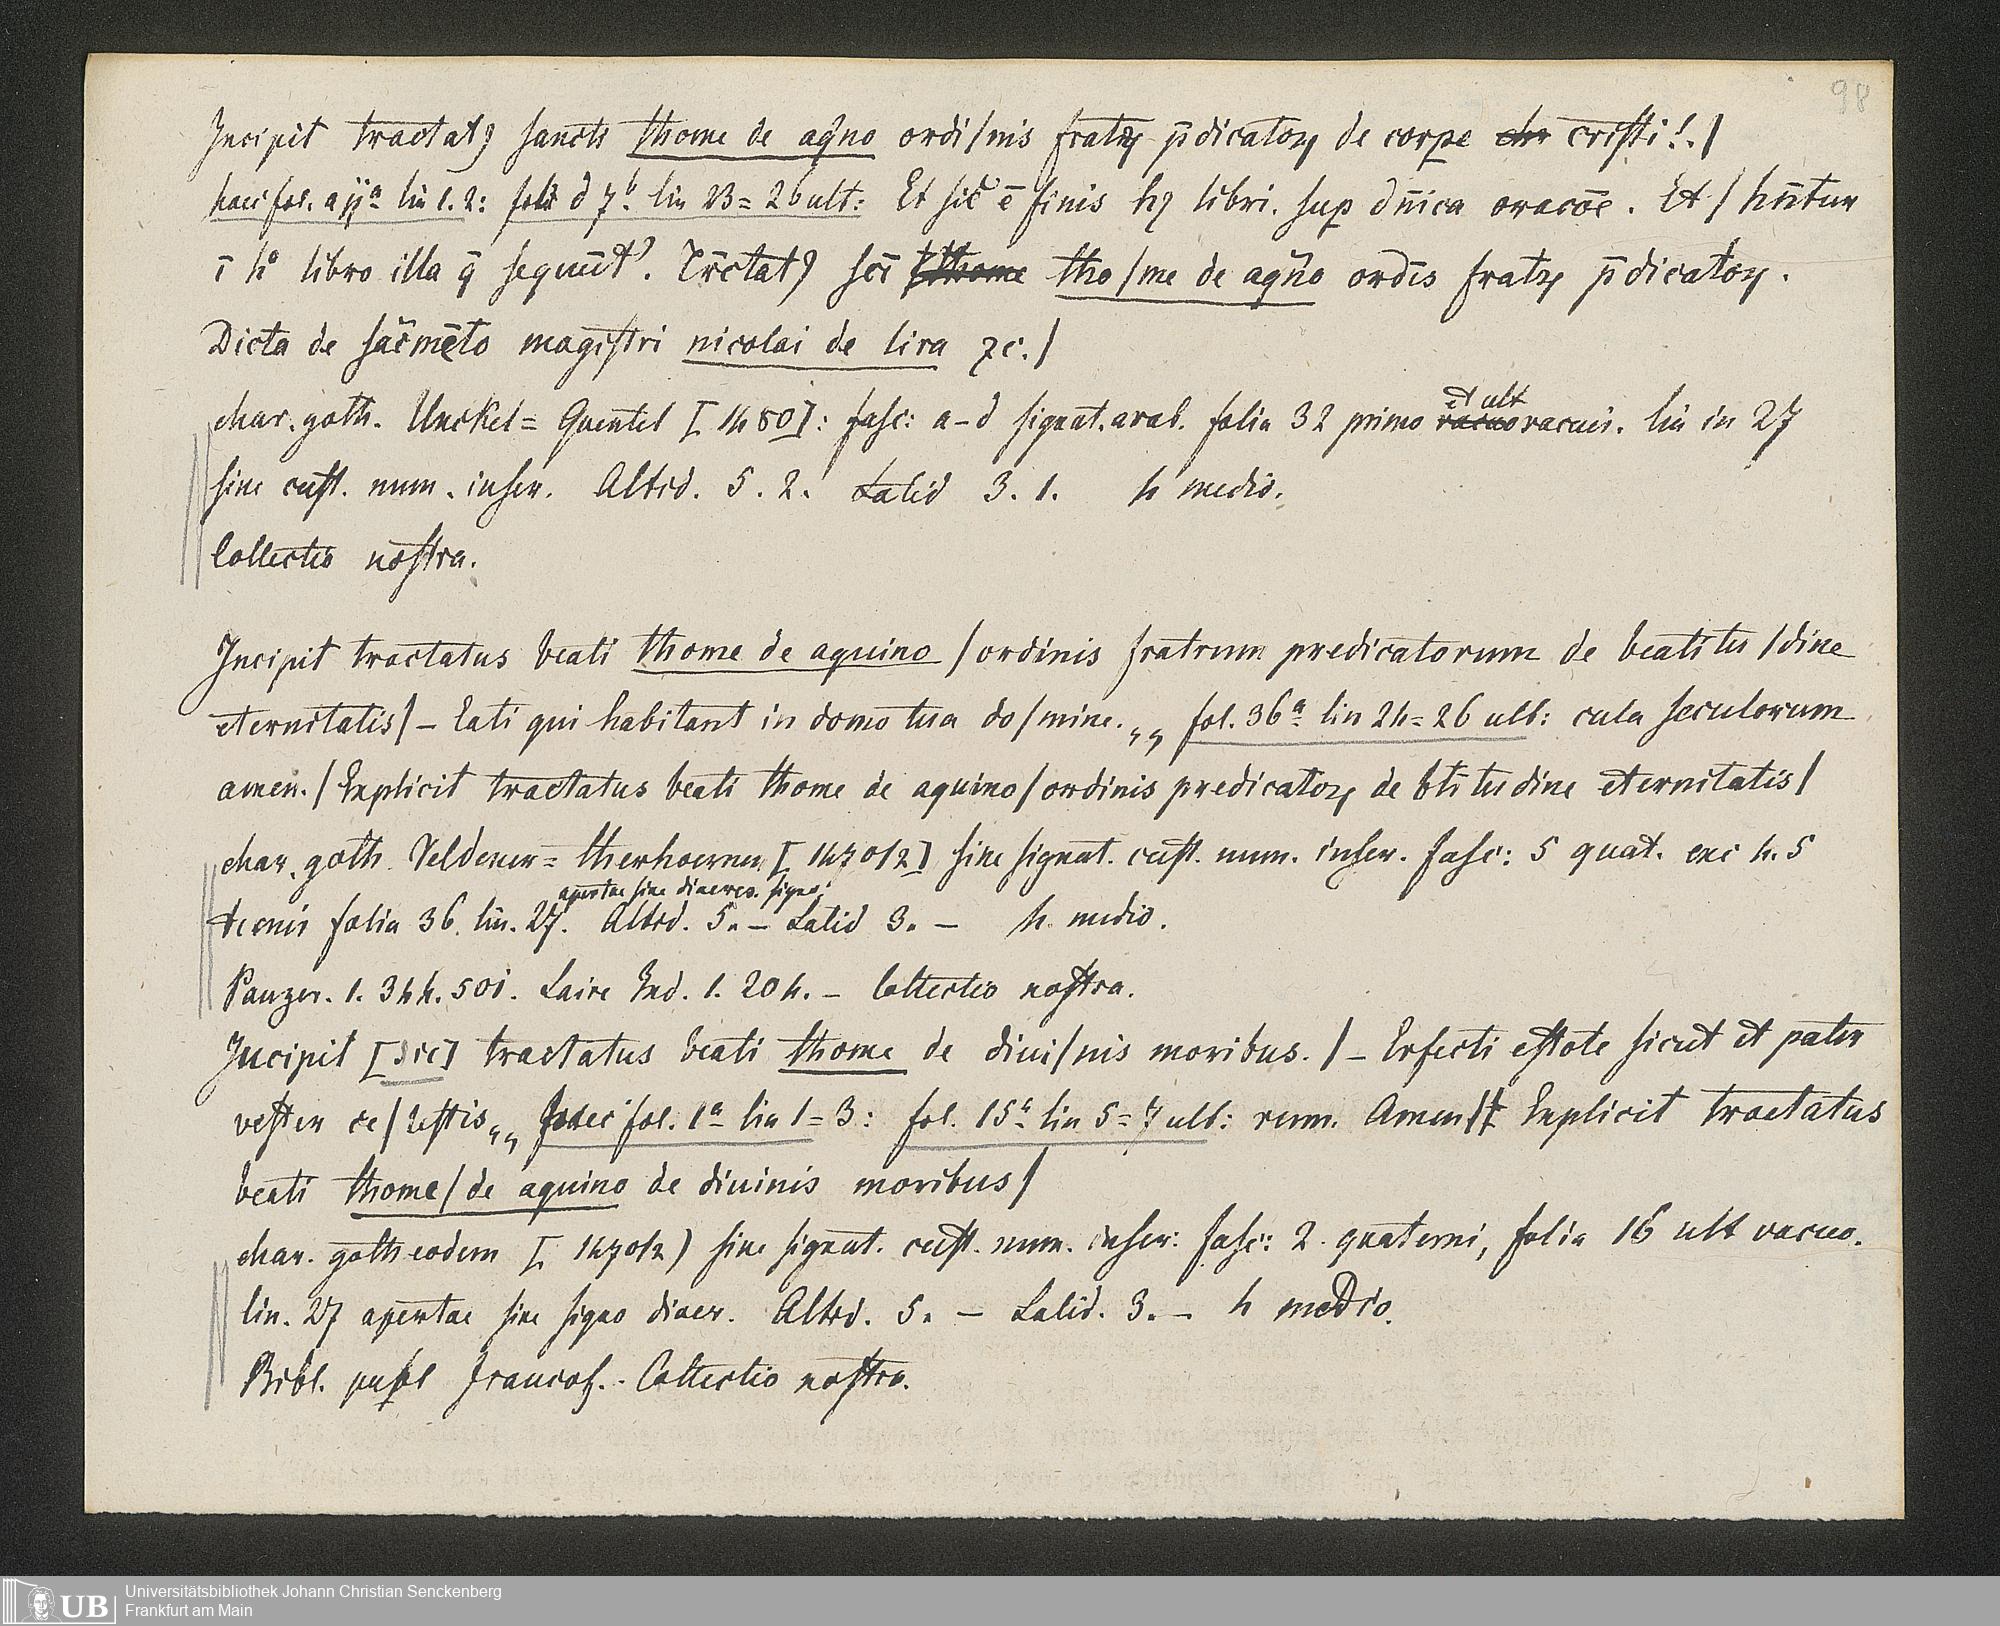 98
Incipit tractatꝫ sancti thome de aq̃no ordi/nis fratrꝫ p̄dicatoꝝ de corpe cristi!./
haec fol. a ijª lin 1. 2: d 7b lin 23=26 ult: Et sic̄ ē finis hꝫ libri. sup dn̄ica oracoē. Et / hn̄tur
ī hº libro illa q̄ sequūt'. Tr̄ctatꝫ scī tho/me de aq̃no ordīs fratꝝ p̄dicatoꝝ.
Dicta de sac̄mēto magistri nicolai de lira ⁊c./
char. goth. Unckel= Quentel [1480]: fasc: a-d signat. arab. folia 32 primo et ult vacuis. lin in 27
sine cust. num. inscr. Altid. 5. 2. Latid 3. 1. 4 medio.
Collectio nostra.
Incipit tractatus beati thome de aquino /ordinis fratrum predicatorum de beatitu /dine
eternitatis/ - Eati qui habitant in domo tua do/mine. „ fol. 36ª lin 24=26 ult: cula seculorum
amen. / Explicit tractatus beati thome de aquino/ordinis predicatoꝝ de bt̄itudine eternitatis/
char. goth. Veldener= therhoernen [1470/2] sine signat. cust. num. inscr. fasc: 5 quat. exc 4. 5
apertae sine diaeres. signo:
folia 36. lin. 27. Altid. 5. - Latid 3. - 4. medio.
Panzer. 1. 344. 501. Laire Ind. 1. 204. - Collectio nostra.
Incipit [sic] tractatus beati thome de diui/nis moribus. / - Erfecti estote sicut et pater
vester ce/lestis „ haec fol. 1ª lin 1=3: fol. 15ª lin 5=7 ult: rum. Amen/ Explicit tractatus
beati thome/de aquino de diuinis moribus/
char. goth eodem [1470/2) sine signat. cust. num. inscr. fasc: 2. quaterni, folia 16 ult vacuo.
lin. 27 apertae sine signo diaer. Altid. 5. - Latid. 3. - 4 medio.
Bibl. publ Francof. - Collectio nostra.
UB
Universitätsbibliothek Johann Christian Senckenberg
Frankfurt am Main